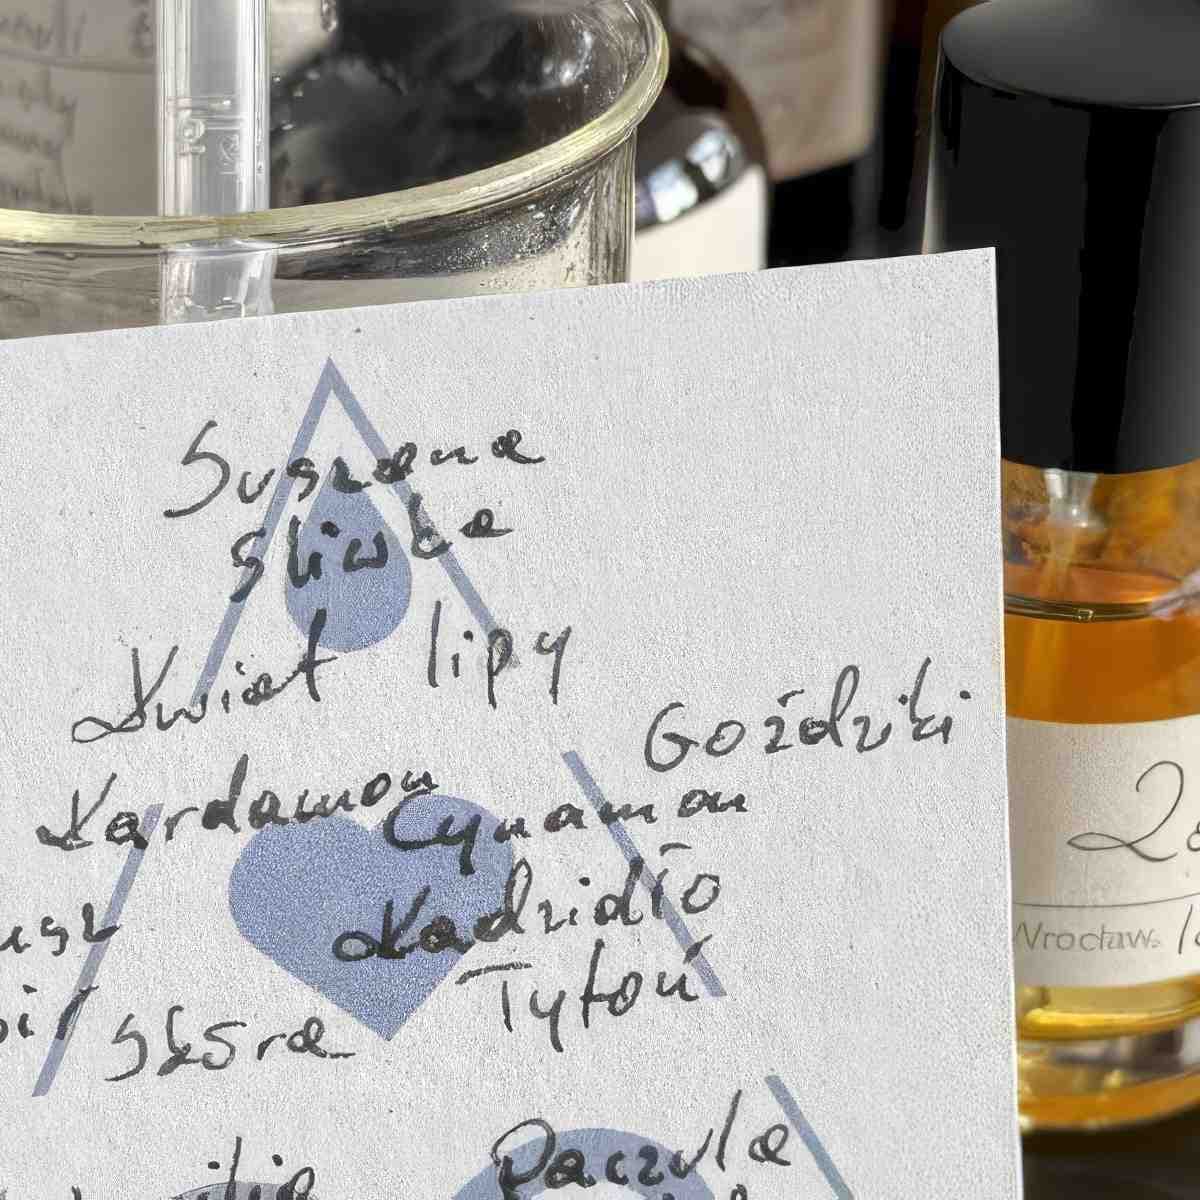 Suszona
śliwka
Kwiat lipy
Goździki
Kardamon
Cynamon
Kadzidło
Tytoń
Skóra
Paczula
Wrocław.